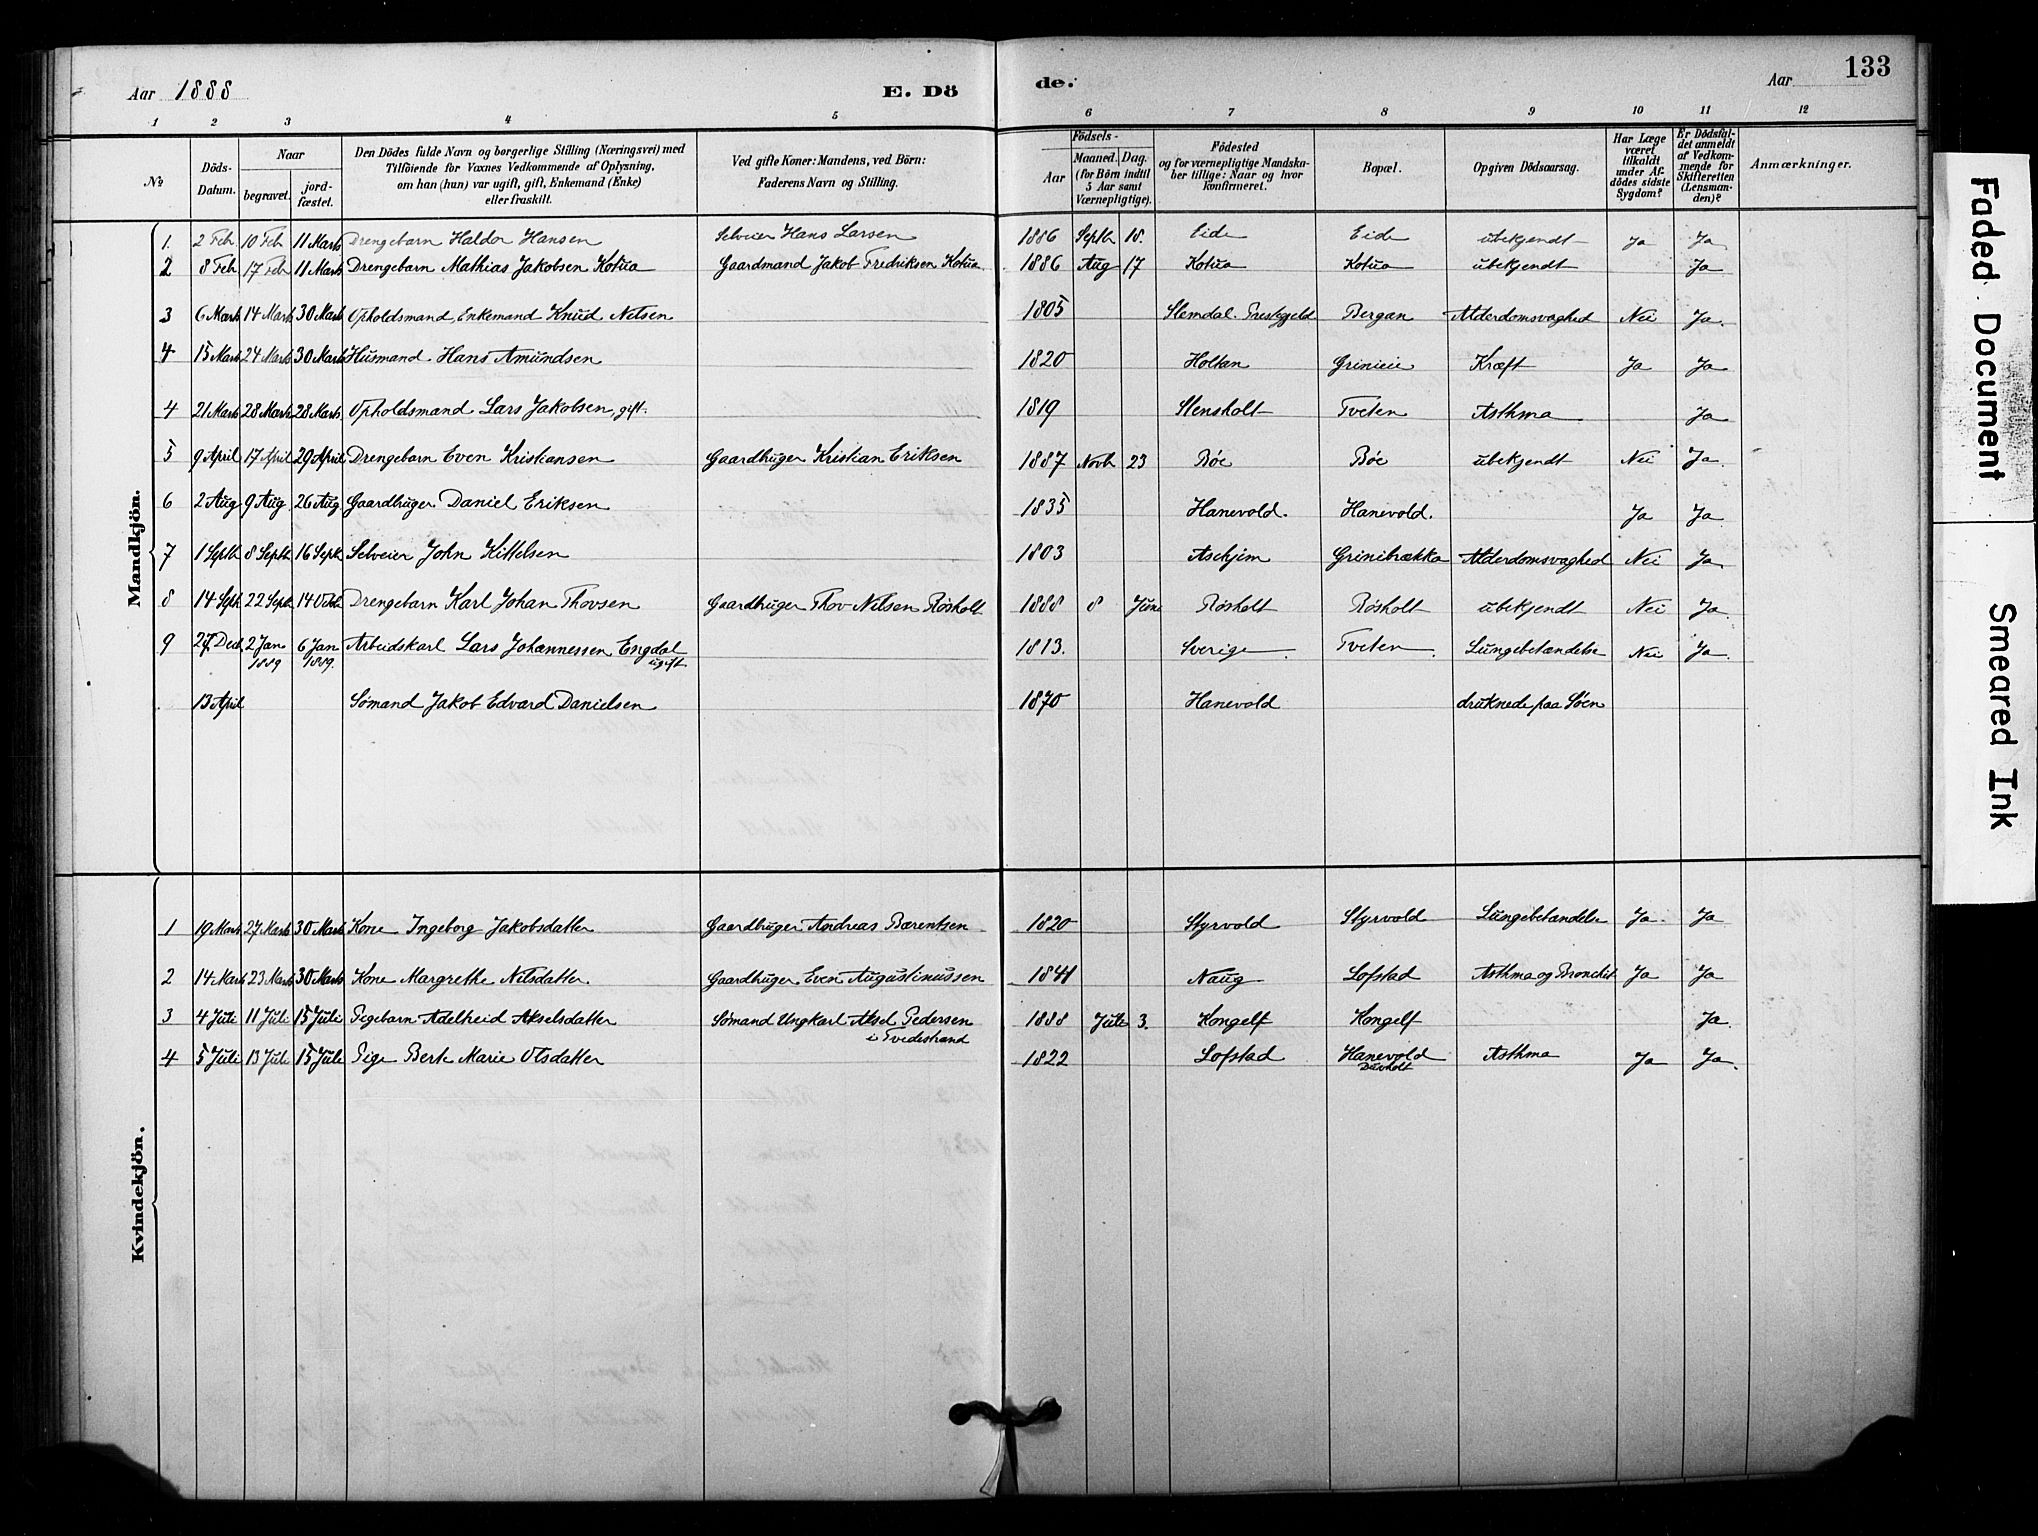 Aar 1888 E. Dö de. Aar 133
1 2 3 4 5 6 7 8 9 10 11 12
No.
Döds-Datum.
Naar
begravet.
jord-fæstet.
Den Dödes fulde Navn og borgerlige Stilling (Næringsvei) med
Tilföiende for Voxnes Vedkommende af Oplysning,
om han (hun) var ugift, gift, Enkemand (Enke)
eller fraskilt.
Ved gifte Koner: Mandens, ved Börn:
Faderens Navn og Stilling.
Födsels-
Aar
Maaned. Dag.
(for Börn indtil
5 Aar samt
Værnepligtige).
Födested
og for værnepligtige Mandska-
ber tillige: Naar og hvor
konfirmeret.
Bopæl.
Opgiven Dödsaarsag.
Har Læge
været
tilkaldt
under Af-
dödes sidste
Sygdom?
Er Dödsfal-
det anmeldt
af Vedkom-
mende for
Skifteretten
(Lensman-
den)?
Anmærkninger.
Mandkjön.
1. 2 Feb 10 Feb 11 Marts Drengebarn Haldor Hansen Selveier Hans Larsen 1886 Septb 18. Eide Eide ubekjendt Ja Ja
2 8 Feb 17 Feb 11 Marts Drengebarn Mathias Jakobsen Kotua Gaardmand Jakob Fredriksen Kotua 1886 Aug 17 Kotua Kotua ubekjendt Ja
3 6 Marts 14 Marts 30 Marts Opholdsmand, Enkemand Knud Nilsen 1805 Slemdal Prestegjeld Bergan Alderdomsvaghed Nei Ja.
4 15 Marts 24 Marts 30 Marts Husmand Hans Amundsen 1820 Holtan Kræft Ja Ja
4 21 Marts 28 Marts 28 Marts Opholdsmand Lars Jakobsen, gift. 1819 Stensholt Tveten Asthma Ja
5 9 April 17 April 29 April Drengebarn Even Kristiansen Gaardbruger Kristian Eriksen 1887 Novb 23 Böe Böe ubekjendt Nei Ja.
6 2 Aug 9 Aug 26 Aug Gaardbruger Daniel Eriksen 1835 Hanevold. Hanevold. Ja Ja
7 1 Septb 8 Septb 16 Septb Selveier John Kittelsen 1803 Aschjem Grinibrækka Alderdomsvaghed Nei Ja
8 14 Septb 22 Septb 14 Octb Drengebarn Karl Johan Thovsen Gaardbruger Thov Nilsen Rösholt 1888 8 Juni Rösholt Rösholt ubekjendt Nei Ja.
9 27 Decb 2 Jan 6 Jan Arbeidskarl Lars Johannessen Engdal 1813. Sverige Tveten. Lungebetændelse Nei Ja.
1889 1889. ugift
13 April Sömand Jakob Edvard Danielsen 1870 Hanevold druknede paa Söen
Kvindekjön.
1 19 Marts 27 Marts 30 Marts Kone Ingeborg Jakobsdatter Gaardbruger Andreas Bærentsen 1820 Styrvold Styrvold Lungebetændelse Ja. Ja
2 14 Marts 23 Marts 30 Marts Kone Margrethe Nilsdatter. Gaardbruger Even Augustinussen 1841 Naug Lofstad Asthma og Bronchit. Ja Ja
3 4 Juli 11 Juli 15 Juli Pigebarn Adelheid Akselsdatter Sömand Ungkarl Aksel Pedersen 1888 Juli 3. Kongelf Kongelf Ja.
i Tvedestrand
4 5 Juli 13 Juli 15 Juli Pige Berte Marie Olsdatter 1822 Lofstad Hanevold Asthma Ja Ja.
Faded Document
Smeared Ink